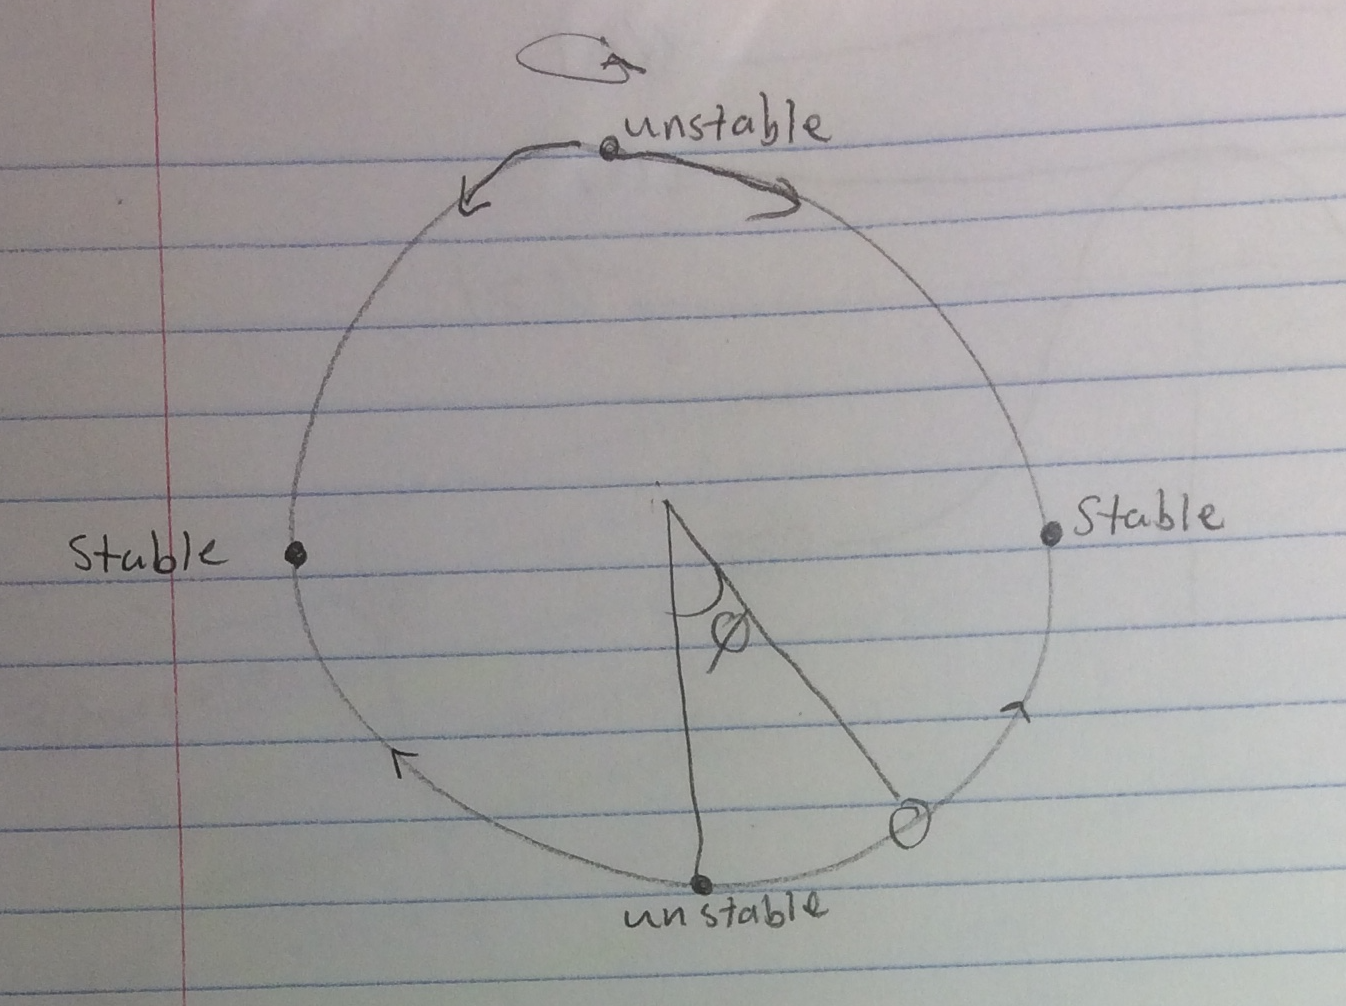 unstable
Stable
Stable
φ
unstable